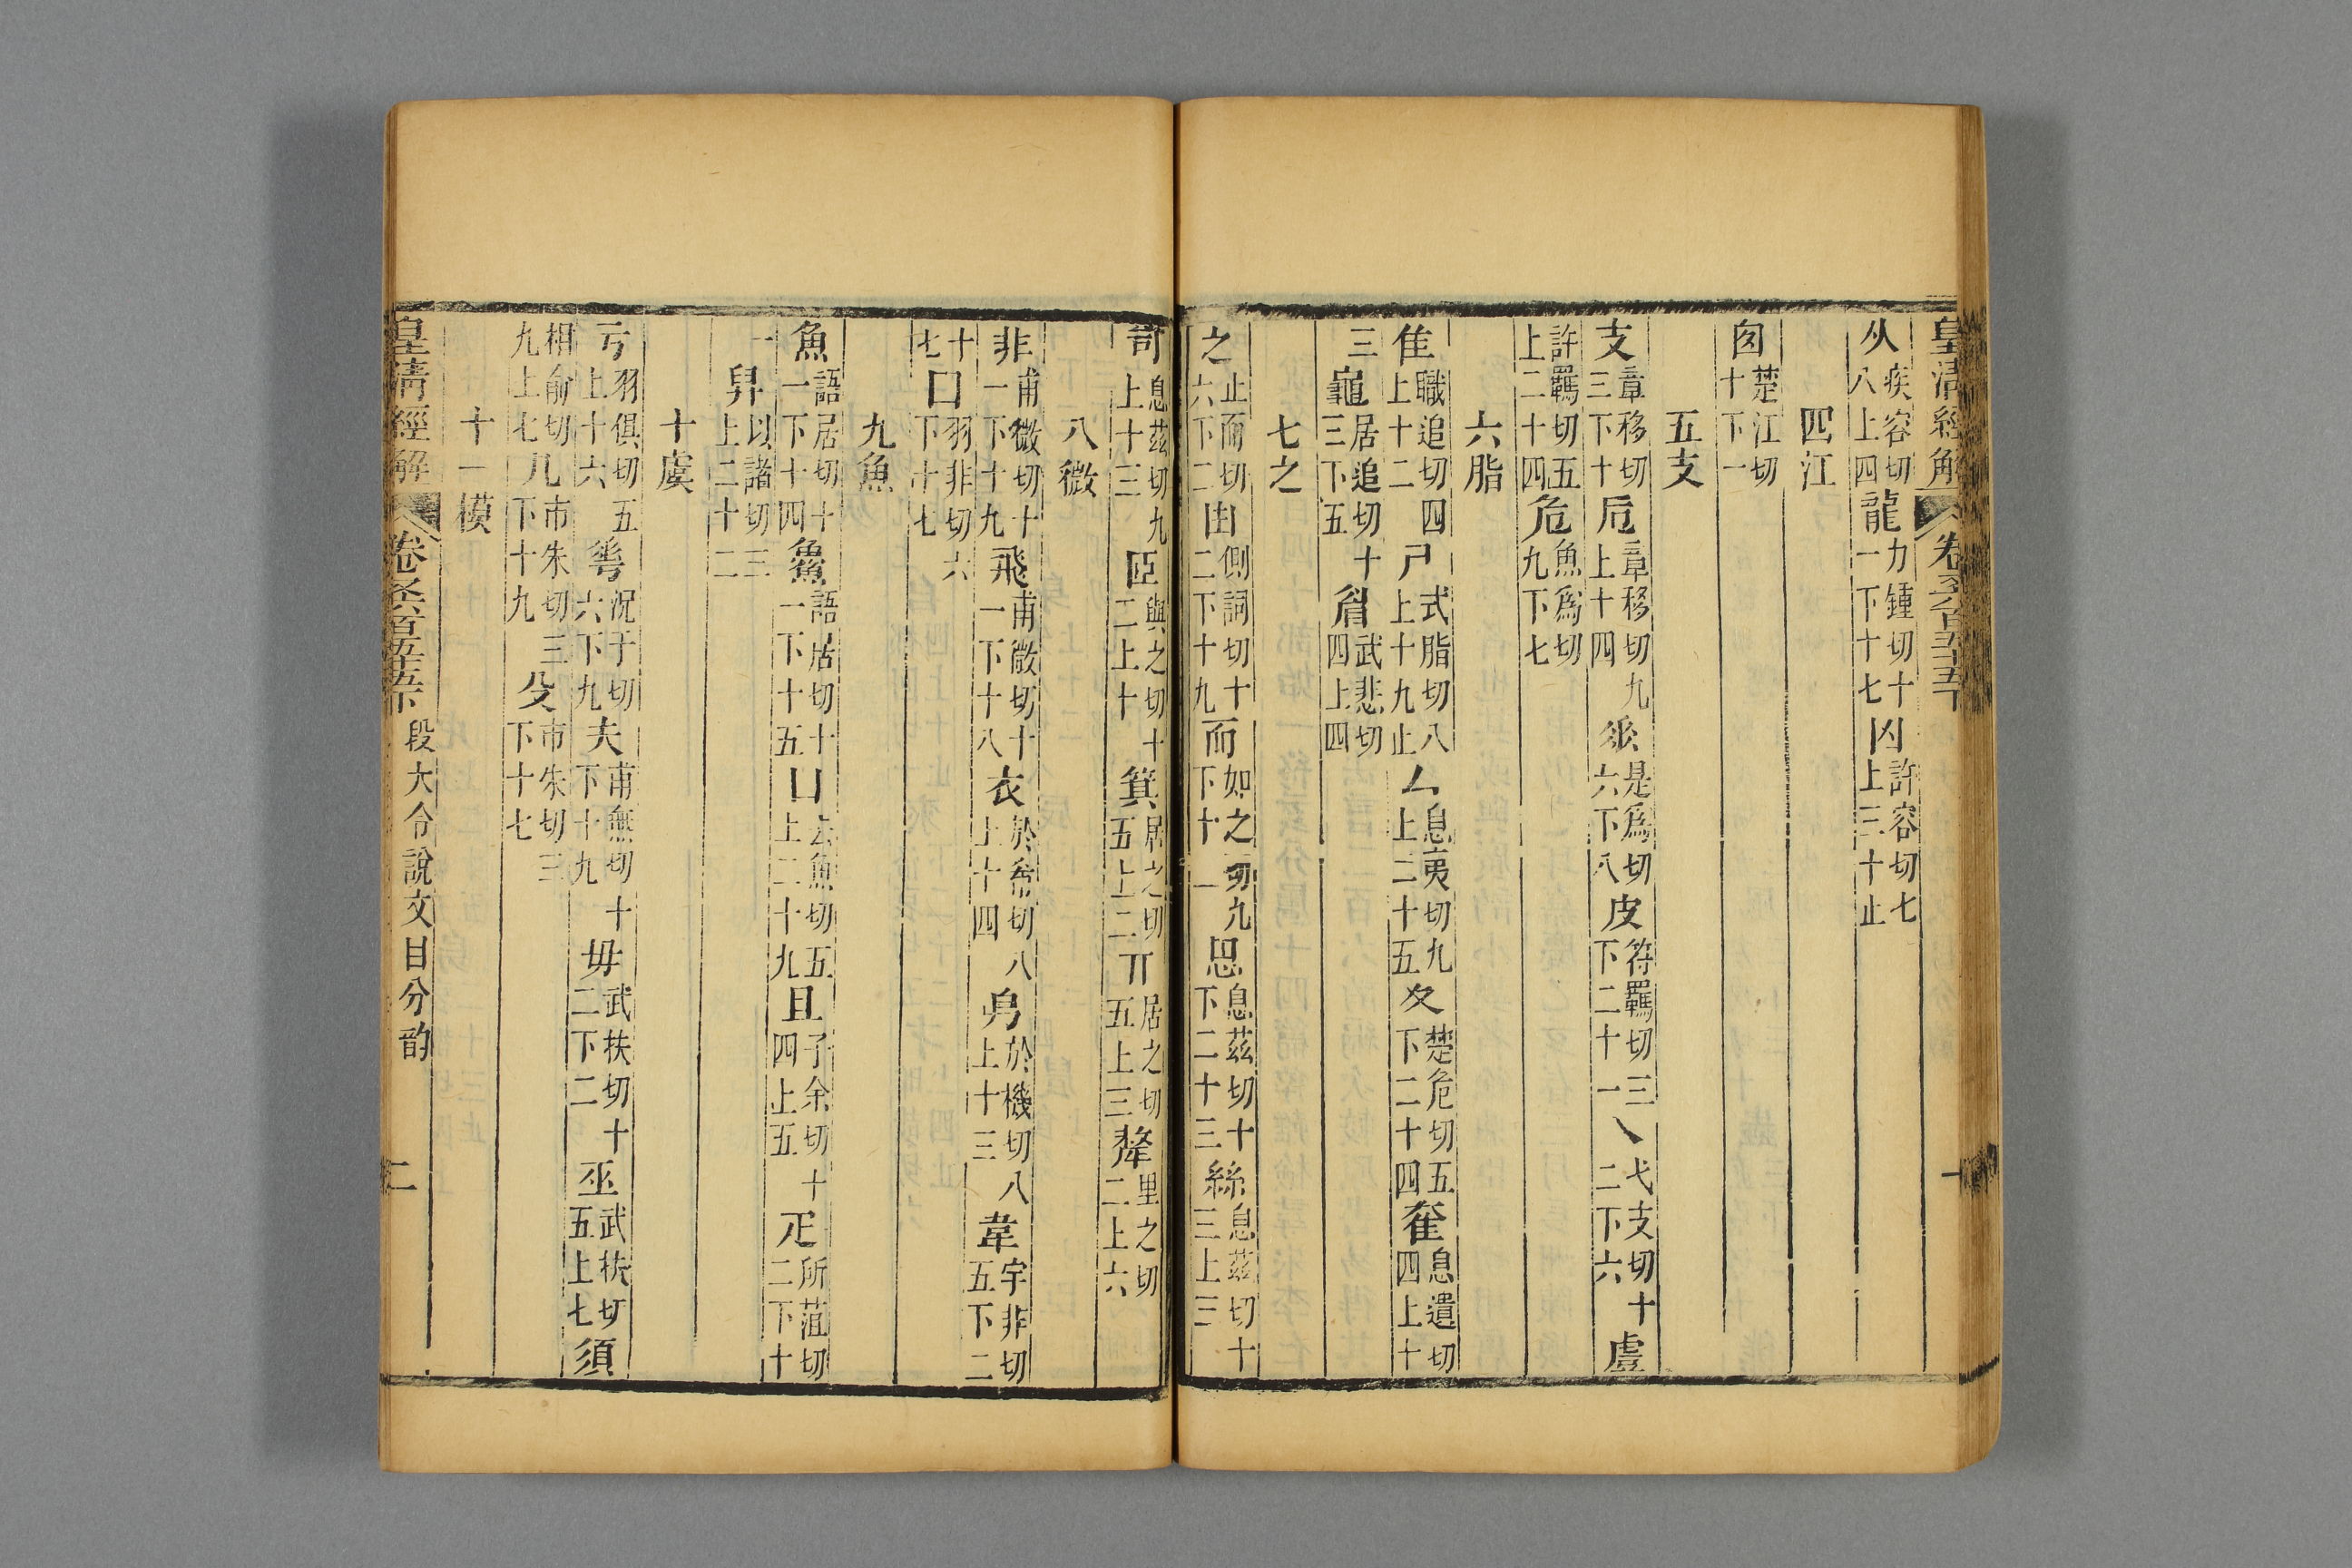 皇清經解 卷六百五十五下 一
从疾容切八上四龍力鍾切十一下十七凶許容切七上三十止
四江
囪楚江切十下一
五支
支章移切三下十卮章移切九上十四𠂹是爲切六下八皮符羈切三下二十一乁弋支切十二下六䖒
許羈切五上二十四危魚爲切九下七
六脂
隹職追切四上十二尸式脂切八上十九止厶息夷切九上二十五夊楚危切五下二十四奞息遺切四上十
三龜居追切十三下五眉武悲切四上四
七之
之止而切六下二甾側詞切十二下十九而如之切九下十一思息茲切十下二十三絲息茲切十三上三
司息茲切九上十三𦣞與之切十二上十箕居之切五上二丌居之切五上三犛里之切二上六
八微
非甫微切十一下十九飛甫微切十一下十八衣於稀切八上十四㐆於機切八上十三韋宇非切五下二
十七囗羽非切六下十七
九魚
魚語居切十一下十四䲆語居切十一下十五凵去魚切五上二十九且子余切十四上五疋所菹切二下十
一舁以諸切三上二十二
十虞
亏羽俱切五上十六𠌶況于切六下九夫甫無切十下十九毋武扶切十二下二巫武扶切五上七須
相俞切九上七几市朱切三下十九殳市朱切三下十七
十一模
皇清經解 卷六百五十五下 段大令說文目分韵 二